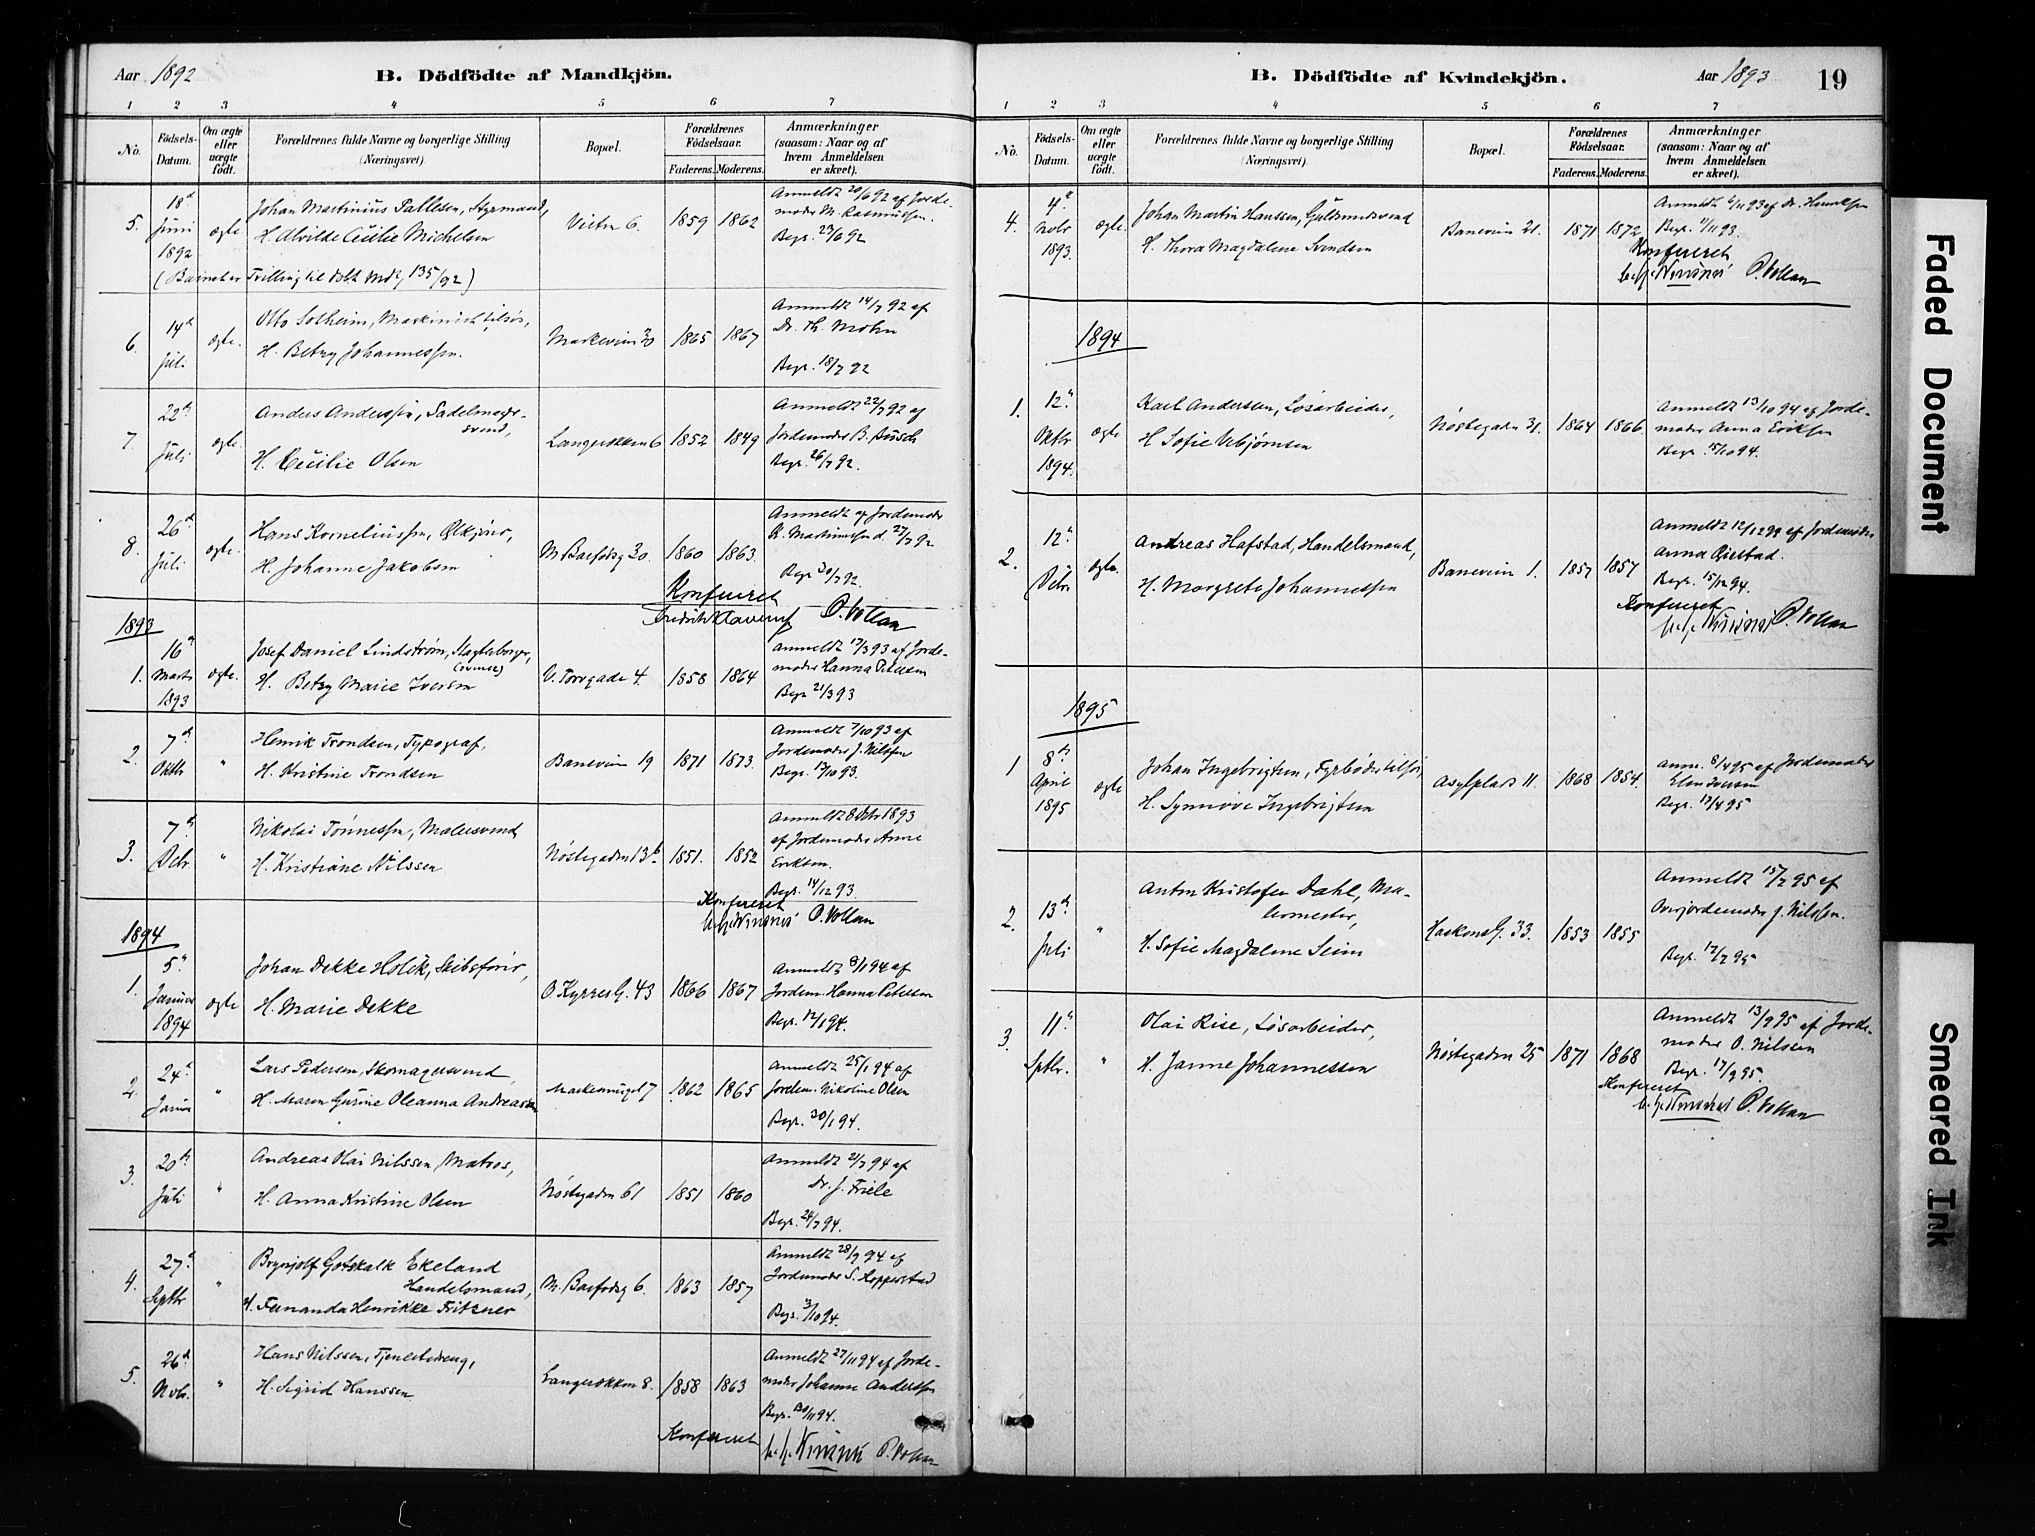 Aar 1892
B. Dödfödte af Mandkjön.
1 2 3 4 5 6 7
No.
Födsels-Datum.
Om ægte eller uægte födt.
Forældrenes fulde Navne og borgerlige Stilling
(Næringsvei).
Bopæl.
Forældrenes Födselsaar.
Faderens.
Moderens.
Anmærkninger
(saasom: Naar og af
hvem Anmeldelsen
er skeet).
5. 18d Juni 1892 ægte
Johan Martinius Pallesen, Styrmand,
H. Alvilde Cecilie Michelsen
6. 1859 1862
Anmeldt 20/6 92 af Jorde-
moder M. Rasmussen.
Begr. 23/6 92
(Barnet er Tvilling til Mdz 135/92)
6. 14d Juli ægte.
Otto Solheim,
H. Betzy Johannessen.
Markeveien 30 1865 1867
Anmeldt 14/7 92 af
Dr. Th. Mohn
Begr. 18/7 92
7. 22d Juli ægte.
Anders Anderssen, Sadelmager-
svend,
H. Cecilie Olsen
6 1852 1849
Anmeldt 22/7 92 af
Jordemoder B. Busch
Begr. 26/7 92.
8. 26d Juli ægte.
Hans Korneliussen, Ølkjører,
H. Johanne Jakobsen
30. 1860 1863.
Anmeldt af Jordemoder
K. Martinussen d. 27/7 92
Begr. 30/7 92.
Konfereret
O. Vollan
1893
1. 16d Marts 1893 ægte.
Josef Daniel Lindstrøm,
H. Betzy Marie Iversen
V. Torvgade 4. 1858 1864
Anmeldt 17/3 93 af Jorde-
moder Hanna Petersen
Begr. 21/3 93
2. 7d Oktbr "
Henrik Trondsen, Typograf,
H. Kristine Trondsen
Baneveien 19 1871 1873.
Anmeldt 7/10 93 af
Jordemoder J. Nilssen
Begr. 13/10 93.
3. 7d Debr. "
Nikolai Tønnessen, Malersvend
H. Kristiane Nilssen
Nøstegaden 13b. 1851. 1852
Anmeldt 8 Debr 1893
af Jordemoder Anne
Eriksen.
Begr. 14/12 93.
Konfereret
O. Vollan
1894
1. 5d Januar 1894 ægte
Johan Dekke Holck, Skibsfører,
H. Marie Dekke
O. Kyrres G. 43 1866 1867
Anmeldt 8/1 94 af
Jordem. Hanna Petersen
Begr. 12/1 94.
2. 24d Januar "
Lars Pedersen, Skomagersvend
H. Maren Gurine Oleanna Andreassen
7 1862 1865
Anmeldt 25/1 94 af
Jordem. Nikoline Olsen
Begr. 30/1 94.
3. 20d Juli "
Andreas Olai Nilssen, Matros,
H. Anna Kristine Olsen
Nøstegaden 61 1851 1860
Anmeldt 21/7 94 af
Dr. J. Friele
Begr. 24/7 94.
4. 27d Septbr "
Brynjolf Gotskalk Ekeland
Handelsmand,
H. Fernanda Henrikke Fritzner
6. 1863 1857
Anmeldt 28/9 94 af
Jordemoder S. Hopperstad
Begr. 3/10 94.
5. 26d Novbr. "
Hans Nilssen, Tjenestedreng,
H. Sigrid Hanssen
8. 1858 1863
Anmeldt 27/11 94 af Jorde-
moder Johanne Anderssen
Begr. 30/11 94.
Konfereret
O. Vollan
B. Dödfödte af Kvindekjön.
Aar 1893
19
1 2 3 4 5 6 7
No.
Födsels-Datum.
Om ægte eller uægte födt.
Forældrenes fulde Navne og borgerlige Stilling
(Næringsvei).
Bopæl.
Forældrenes Födselsaar.
Faderens.
Moderens.
Anmærkninger
(saasom: Naar og af
hvem Anmeldelsen
er skeet).
4. 4d Novbr 1893. ægte.
Johan Martin Hanssen, Guldsmedsvend
H. Thora Magdalene Svendsen
Baneveien 21. 1871 1872
Anmeldt 6/11 93 af Dr. Henriksen
Begr. 11/11 93.
Konfereret
O. Vollan
1894
1. 12d Oktbr 1894. ægte
Karl Anderssen, Løsarbeider,
H. Sofie Vebjørnsen
Nøstegaden 31. 1864 1866.
Anmeldt 13/10 94 af Jorde-
moder Anna Eriksen
Begr. 15/10 94.
2. 12d Debr. ægte.
Andreas Hafstad, Handelsmand,
H. Margrete Johannessen
Baneveien 1. 1857 1857
Anmeldt 12/12 94 af Jordemoder
Anna Qvestad.
Begr. 15/12 94.
Konfereret
O. Vollan
1895
1 8d April 1895 ægte
Johan Ingebrigtsen,
H. Synnøve Ingebrigtsen
Asylplads 11. 1868 1854.
Anm. 8/4 95 af Jordemoder
Elen Iversen
Begr. 17/4 95
2. 13d Juli "
Anton Kristofer Dahl, Ma-
lermester,
H. Sofie Magdalene Seim
Haakons G. 33. 1853 1855
Anmeldt 15/7 95 af
Overjordemoder J. Nilssen.
Begr. 17/7 95
3. 11d Septbr. "
Olai Rise, Løsarbeider,
H. Janne Johannessen
Nøstegaden 25 1871 1868
Anmeldt 13/9 95 af Jorde-
moder O. Nilssen
Begr. 17/9 95.
Konfereret
O. Vollan
Faded Document
Smeared Ink